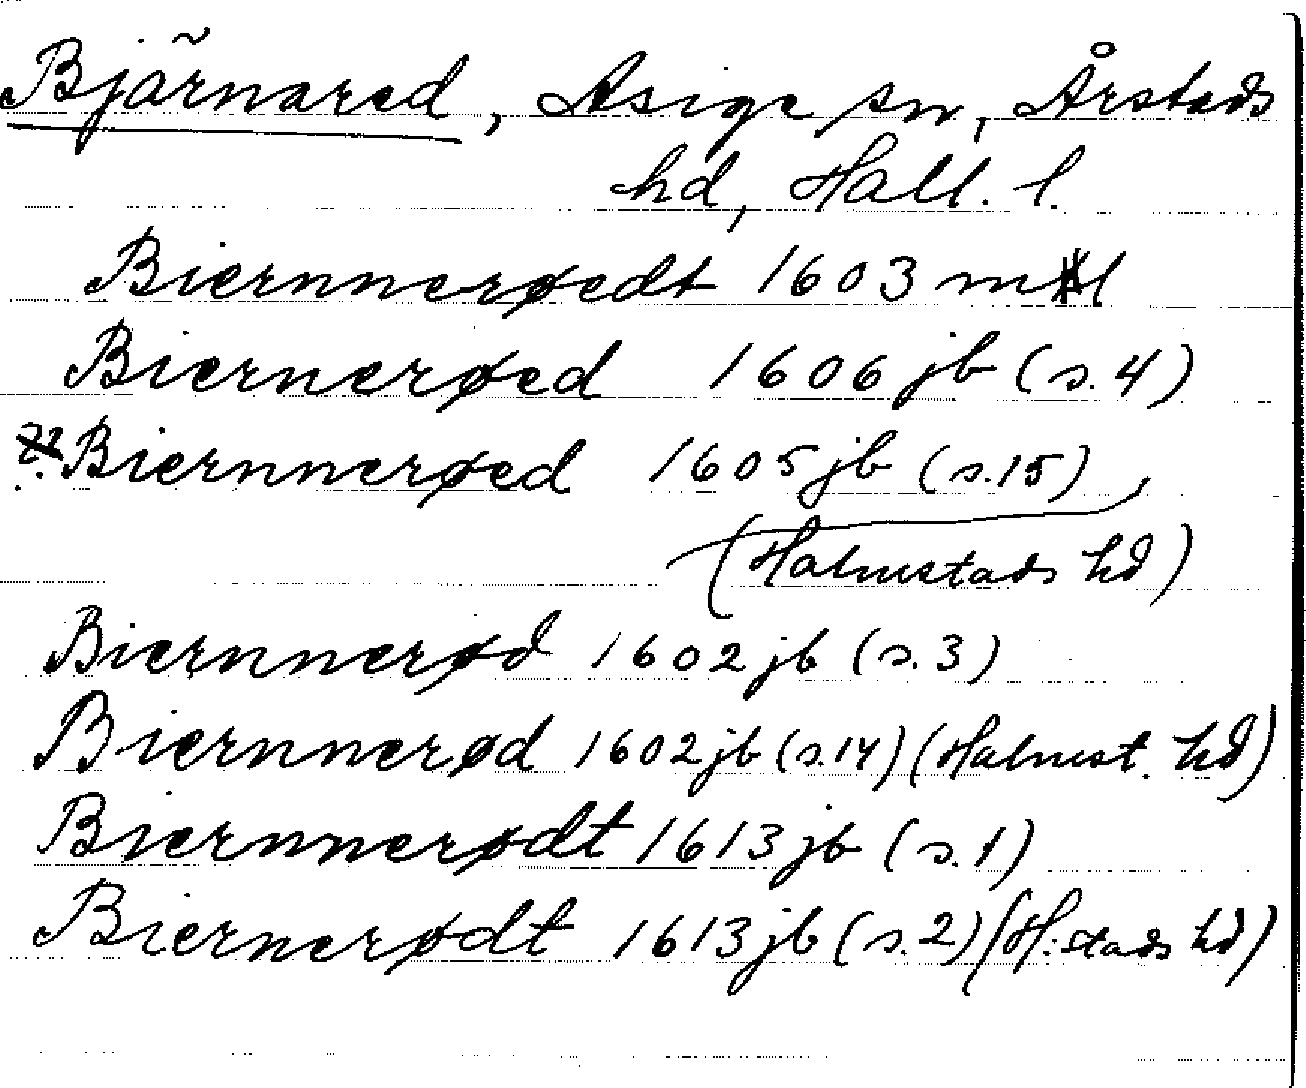 Bjärnared, Asige sn, Årstads
hd, Hall. l.
Biernnerøedt 1603 mtl
Biernerøed 1606 jb (s. 4)
Biernnerøed 1605 jb (s. 15)
(Halmstads hd)
Biernnerød 1602 jb (s. 3)
Biernnerød 1602 jb (s. 14) (Halmst. hd)
Biernnerødt 1613 jb (s. 1)
Biernerødt 1613 jb (s. 2) (H:stads hd)